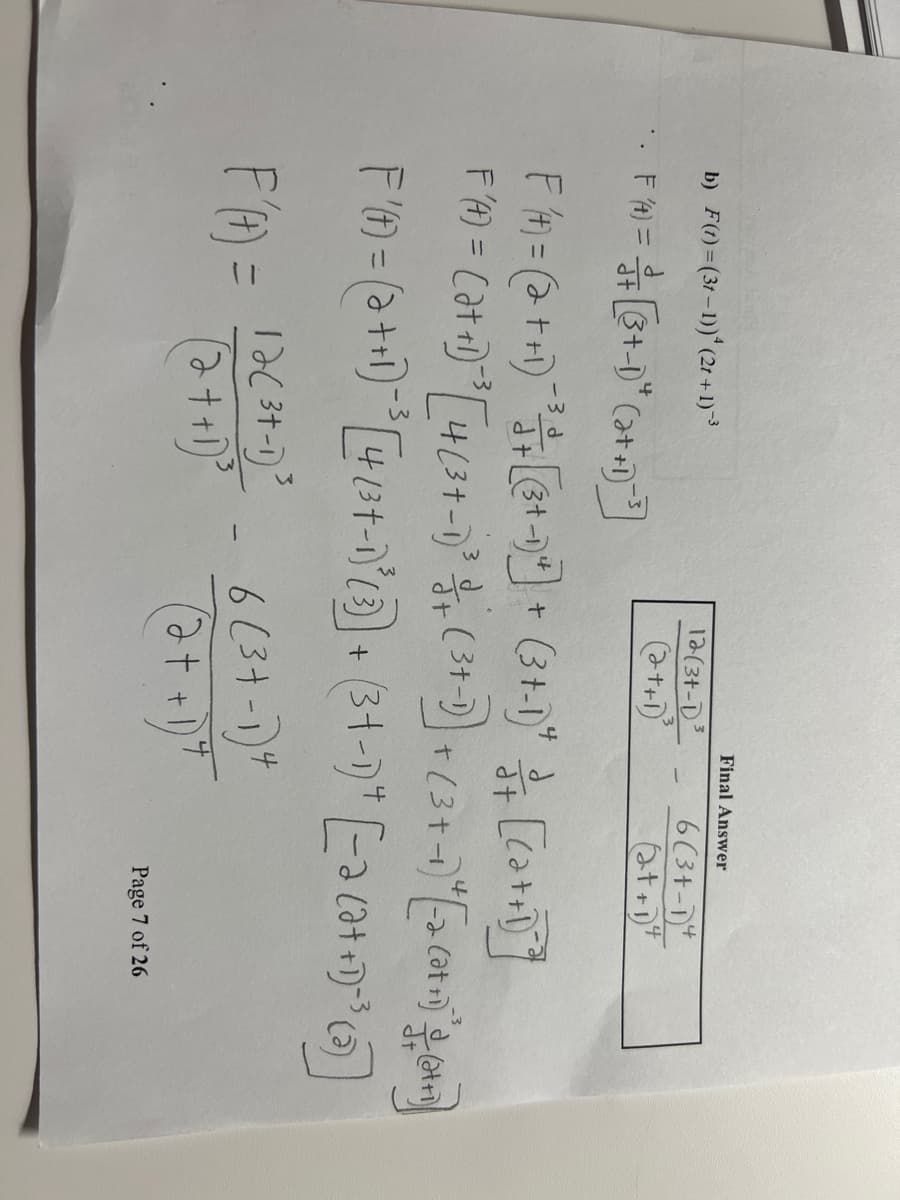 b) F(t) = (3t – 1))⁴ (2t + 1)⁻³
Final Answer
12(3t-1)³/(2t+1)³ - 6(3t-1)⁴/(2t+1)⁴
∴ F'(t) = d/dt [(3t-1)⁴ (2t+1)⁻³]
F'(t) = (2t+1)⁻³ d/dt [(3t-1)⁴] + (3t-1)⁴ d/dt [(2t+1)⁻²]
F'(t) = (2t+1)⁻³ [4(3t-1)³ d/dt (3t-1)] + (3t-1)⁴ [-2(2t+1)⁻³ d/dt (2t+1)]
F'(t) = (2t+1)⁻³ [4(3t-1)³(3)] + (3t-1)⁴ [-2(2t+1)⁻³(2)]
∴ F'(t) = 12(3t-1)³/(2t+1)³ - 6(3t-1)⁴/(2t+1)⁴
Page 7 of 26